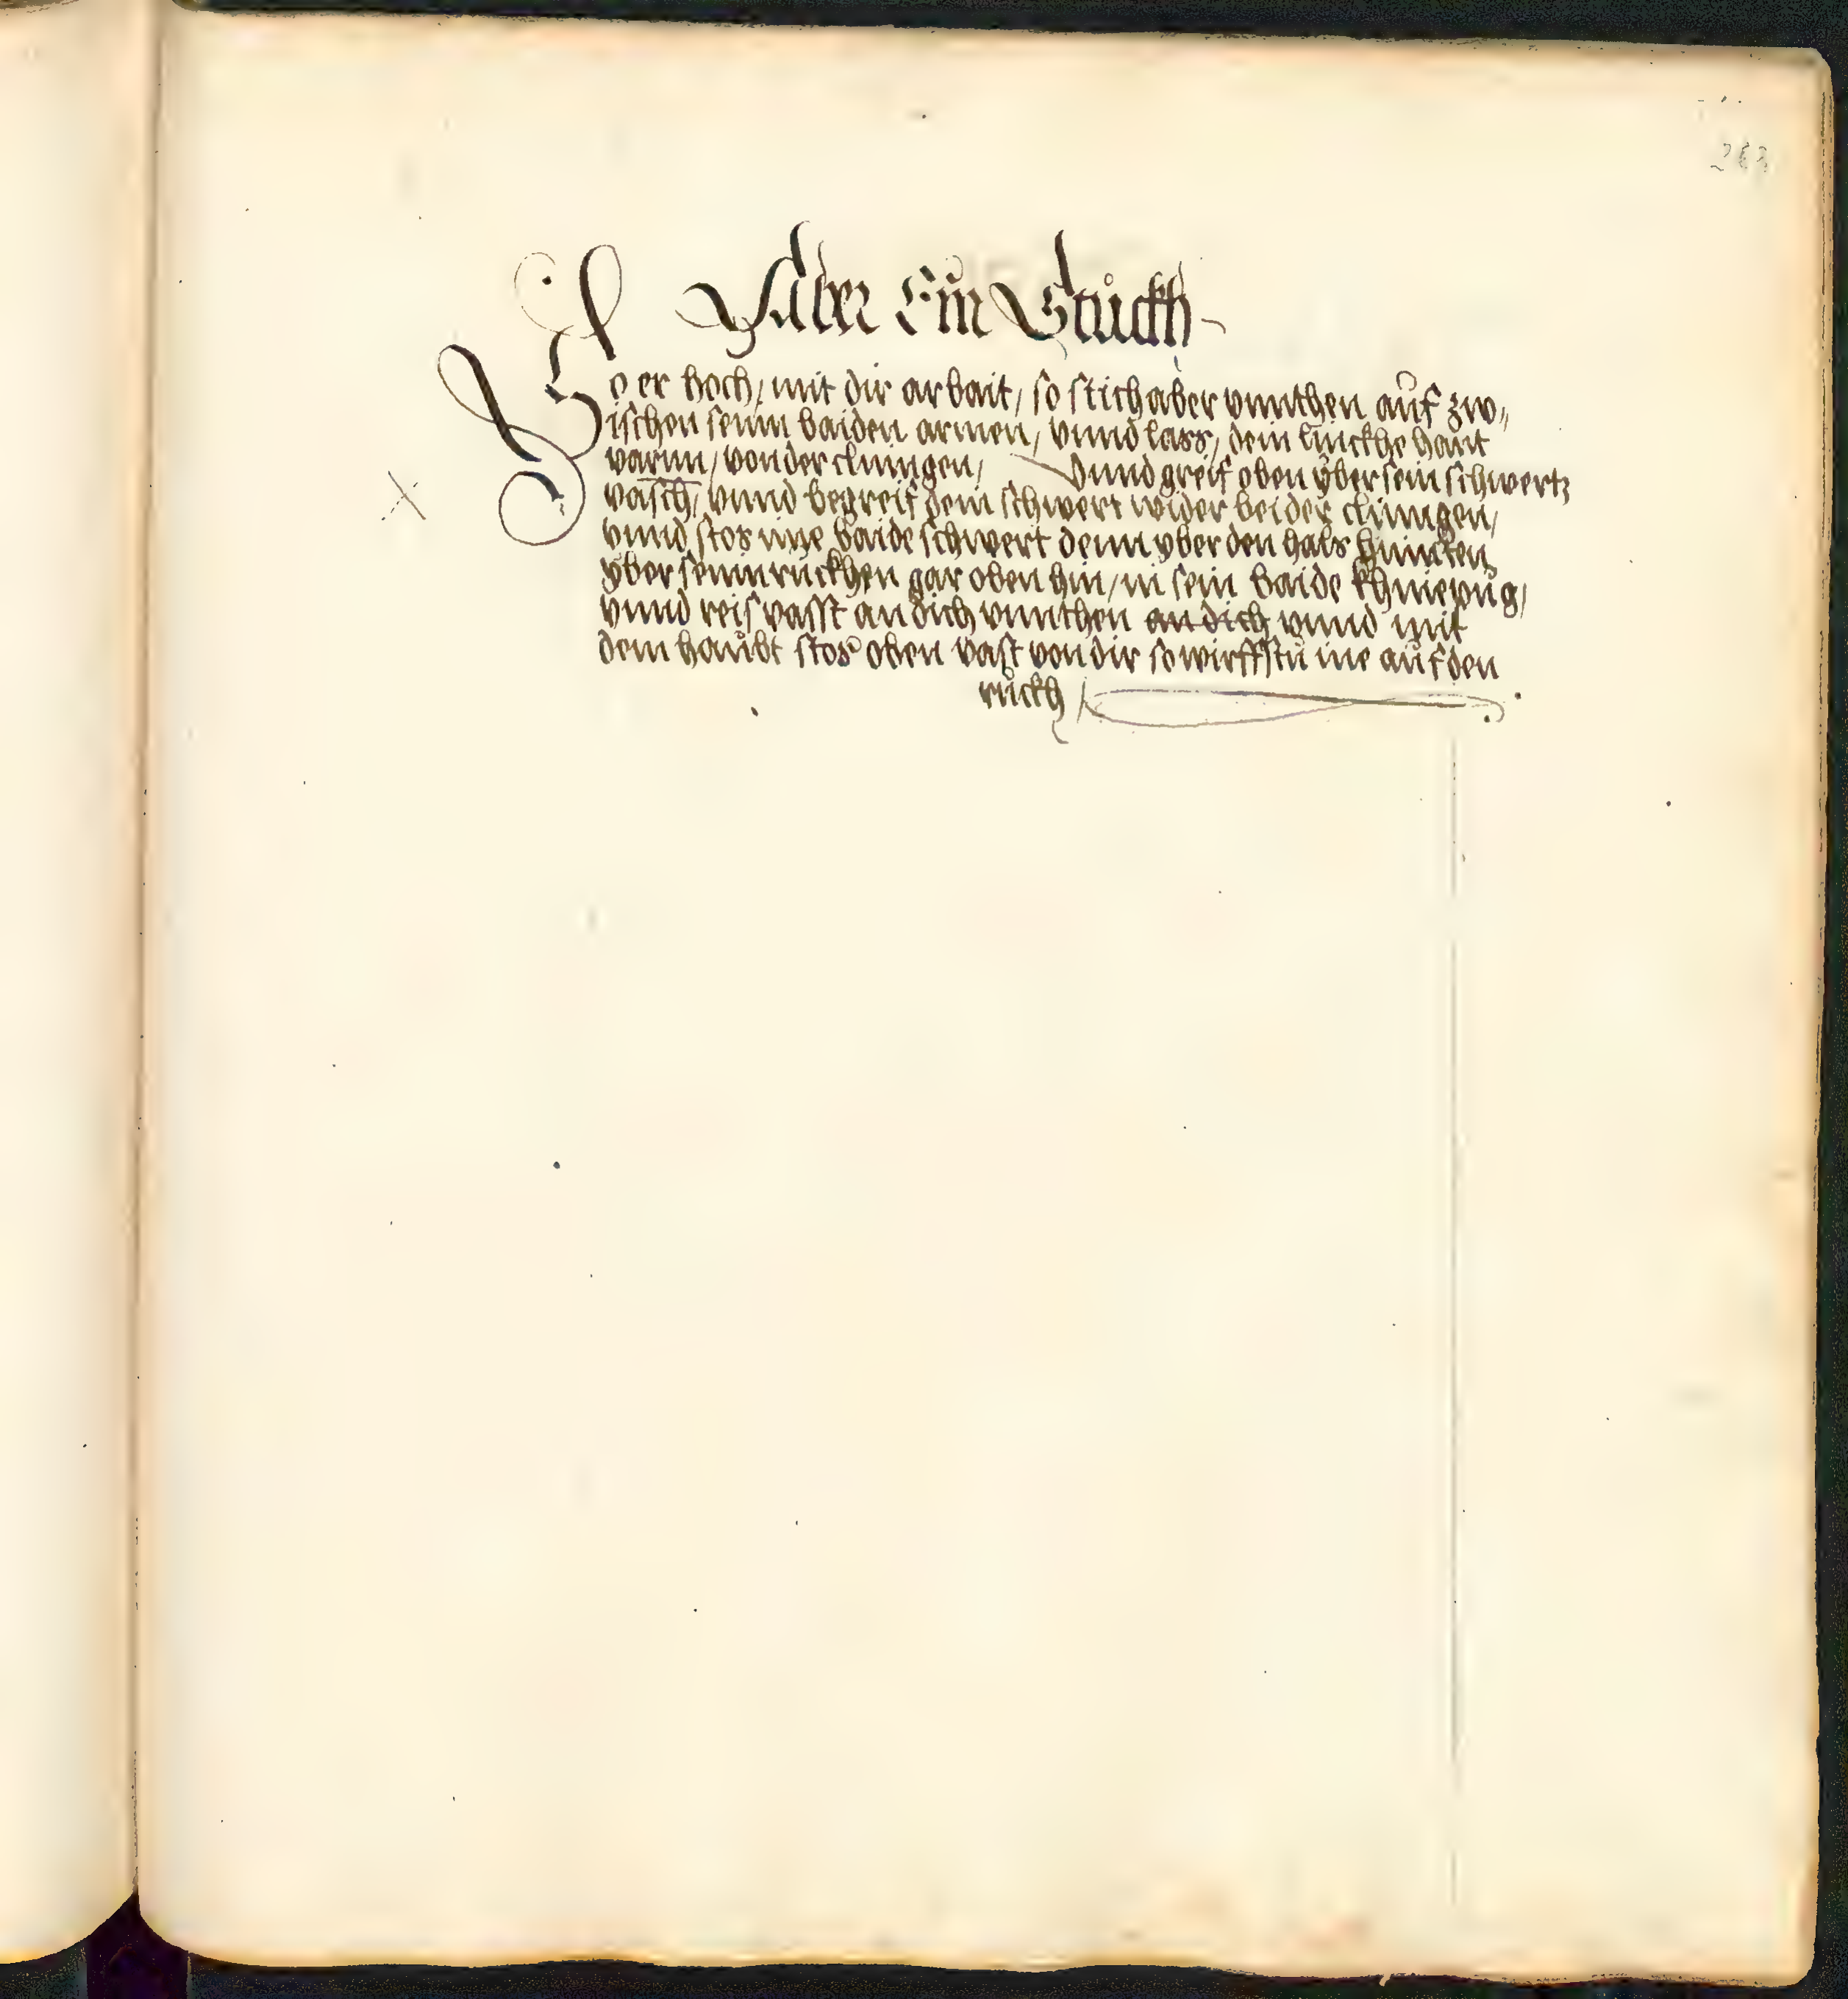 263
Aber Ein Stuckh
So er hoch, mit dir arbait, so stich aber vnnthen auf zw„
ischen seinn baiden armen, vnnd lass, dein linckhe hant
varnn, von der clinngen, Vnnd greif oben yber sein schwert,
vasch, vnnd begreif dein schwert wider beider clinngen,
vnnd stos ime baide schwert denn yber den hals hinnten
yber seinn ruckhen gar oben hin, in sein baide khniepug,
vnnd reis vasst an dich vnnthen an dich vnnd mit
dem haubt stos oben vast von dir so wirffstu ine auf den
ruckh